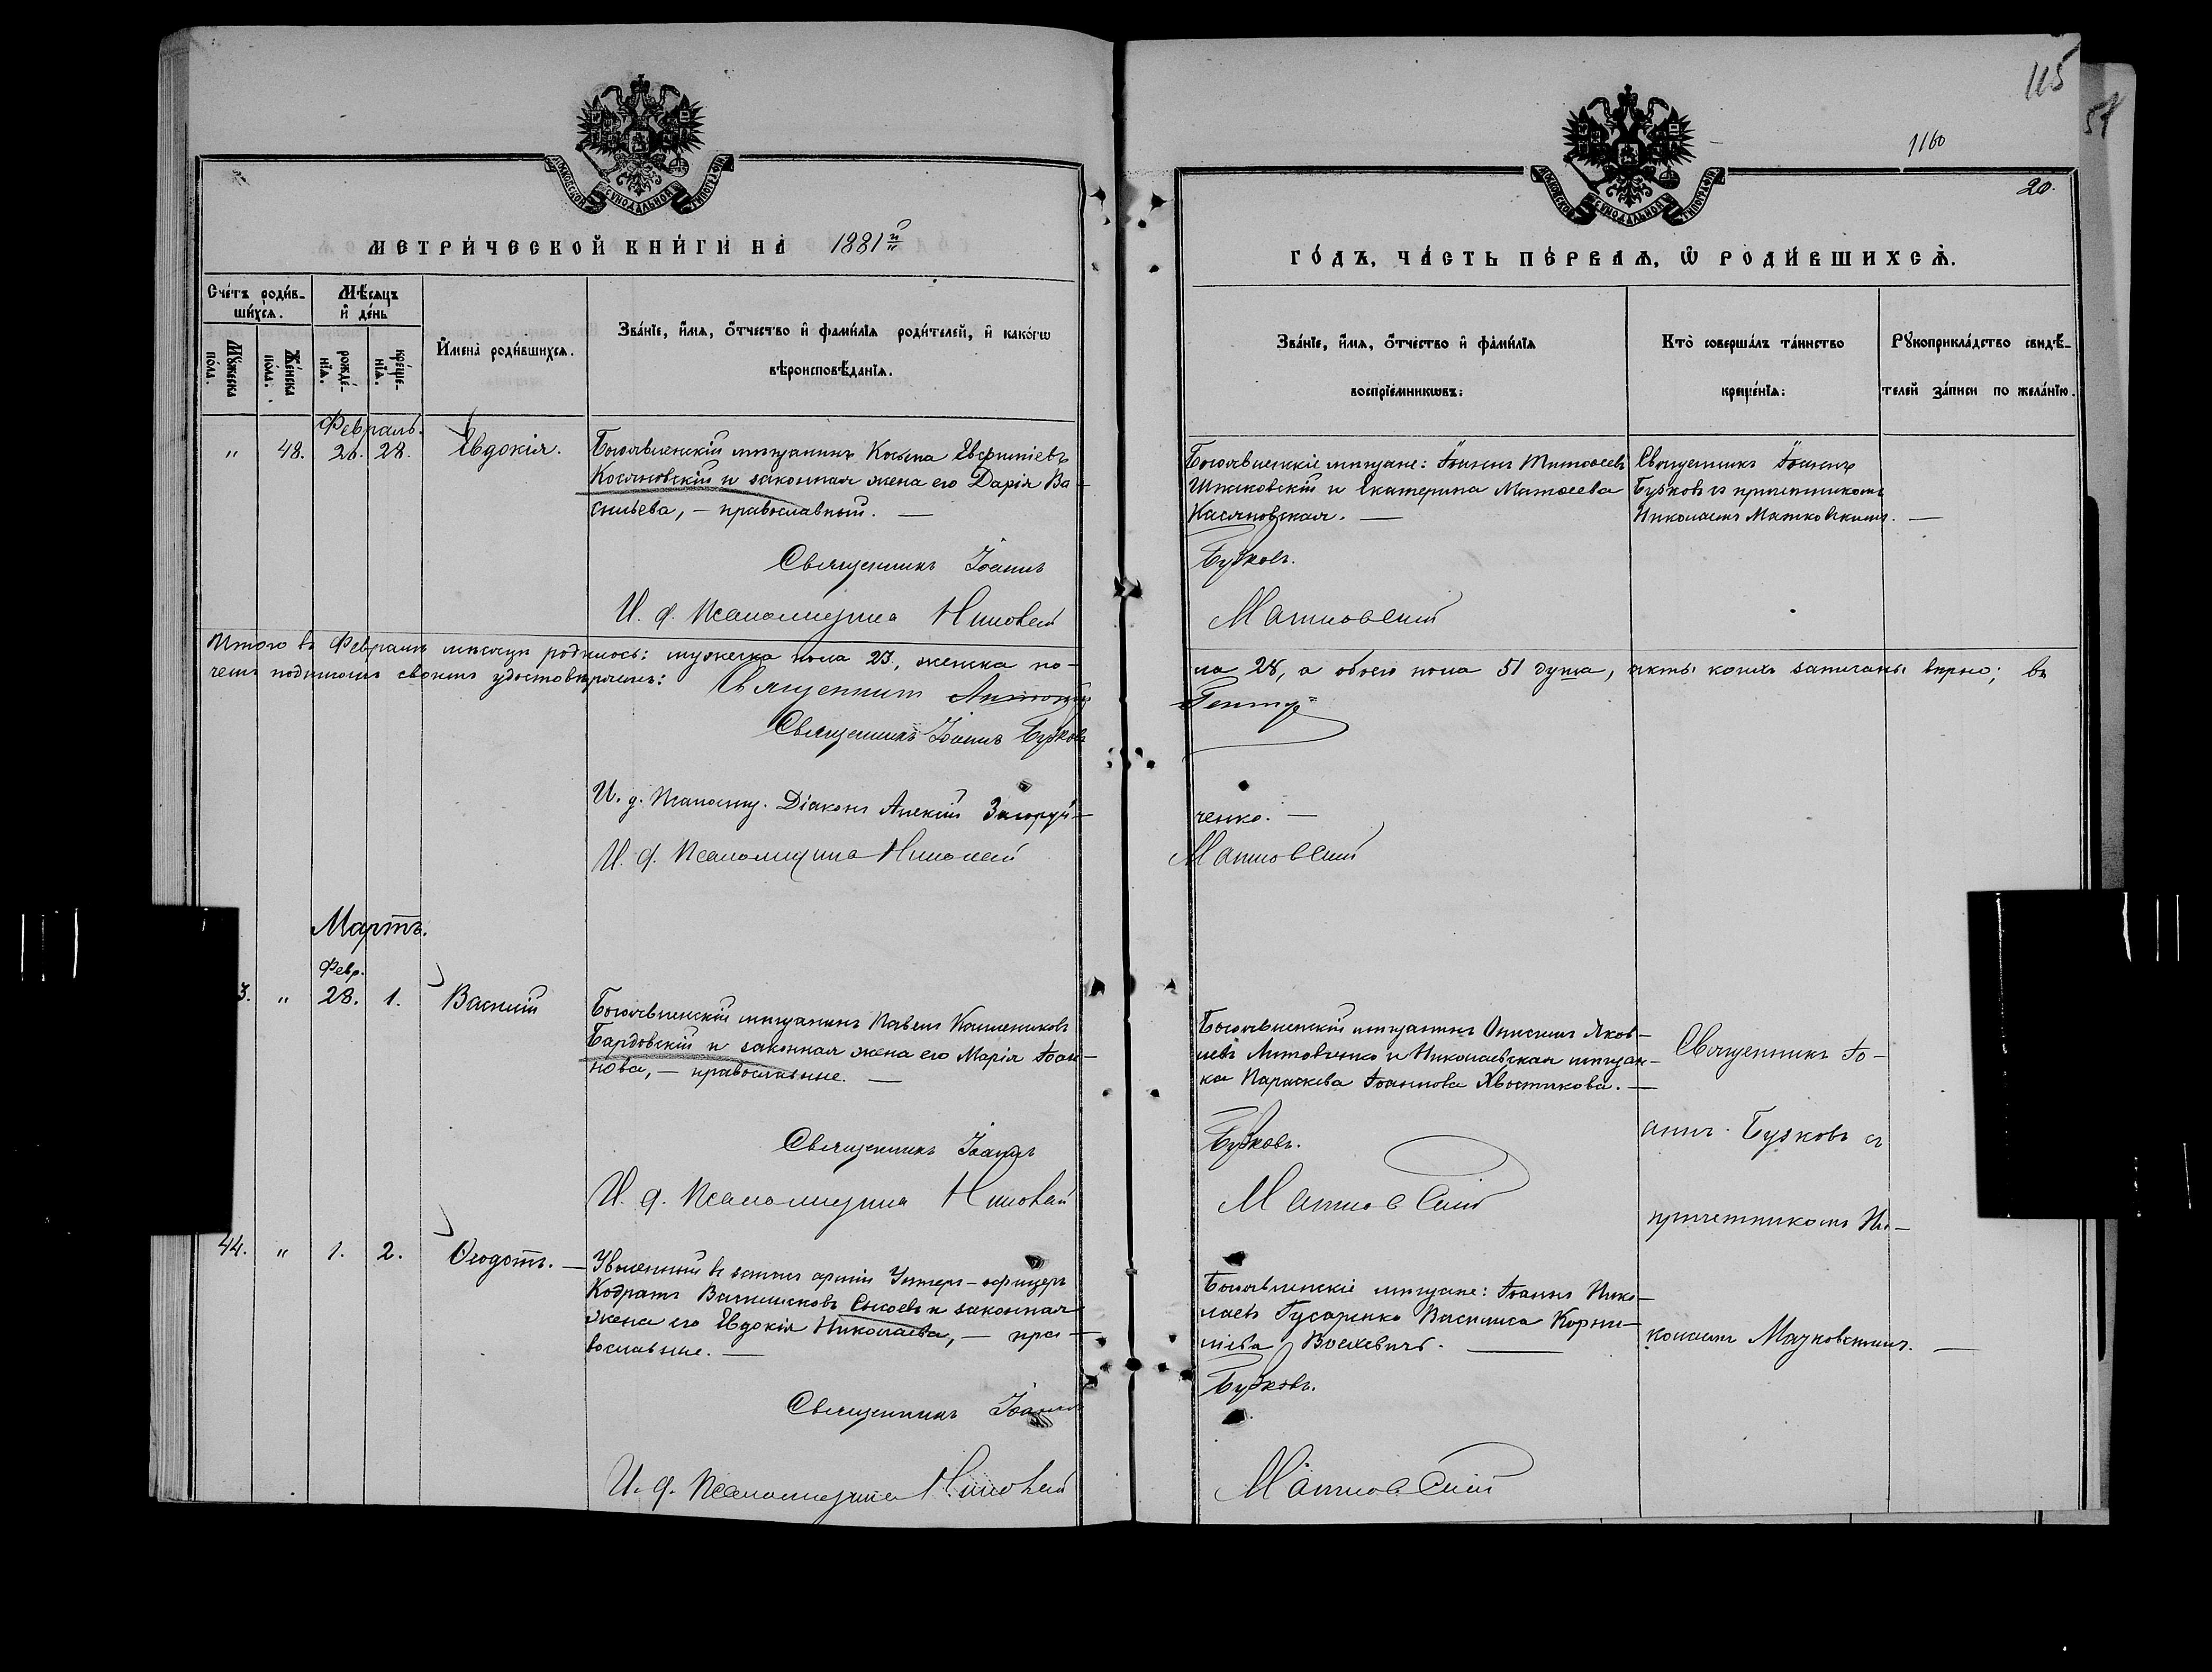 115
51
1160
20.
МОСКОВСКОЙ СУНОДАЛЬНОЙ ТИПОГРАФІИ
МОСКОВСКОЙ СУНОДАЛЬНОЙ ТИПОГРАФІИ
МЕТРИ́ЧЕСКОЙ КНИ́ГИ НА̀ 1881й
ГО́ДЪ, ЧА́СТЬ ПЕ́РВАѦ, Ѡ РОДИ́ВШИХСѦ.
Сче́тъ роди́в-
ши́хсѧ.
Мѣ́сѧцъ
и де́нь
Мꙋ́жеска
по́ла.
Же́нска
по́ла.
рожде́-
нїѧ.
креще́-
нїѧ.
Имена̀ роди́вшихсѧ.
Зва́нїе, и́мѧ, о́тчество и фами́лїѧ роди́телей, и како́гѡ
вѣроисповѣ́данїѧ.
Зва́нїе, и́мѧ, о́тчество и фами́лїѧ
воспрїе́мникѡвъ:
Кто̀ соверша́лъ та́инство
креще́нїѧ:
Рꙋкоприкла́дство свидѣ́-
телей за́писи по жела́нїю.
Февраль.
" 48. 26. 28. Евдокія.
Богоявленскій мѣщанинъ Косьма Евфиміевъ
Косяновскій и законная жена его Дарія Ва-
сильева, – православный. —
Священникъ Іоаннъ
И. д. Псаломщика Николай
Богоявленскіе мѣщане: Іоаннъ Тимоѳеевъ
Шпаковскій и Екатерина Матѳеева
Касяновская. —
Бужковъ.
Матковскій
Священникъ Іоаннъ
Бужковъ съ причетникомъ
Николаемъ Матковскимъ. —
Итого въ Февралѣ мѣсяцѣ родилось: мужеска пола 23, женска по-
ла 28, а обоего пола 51 душа, акты коихъ записаны вѣрно; въ
чемъ подписомъ своимъ удостовѣряемъ: Священникъ
Священникъ Іоаннъ Бужковъ
И. д. Псаломщ. Діаконъ Алексій Загоруй-
ченко. —
И. д. Псаломщика Николай
Матковскій
Мартъ.
Февр.
3. " 28. 1. Василій
Богоявленскій мѣщанинъ Павелъ Каллениковъ
Бардовскій и законная жена его Марія Іоан-
нова, – православные. —
Священникъ Іоаннъ
И. д. Псаломщика Николай
Богоявленскій мѣщанинъ Онисимъ Яков-
левъ Литовченко и Николаевская мѣщан-
ка Параскева Іоаннова Хвостикова. —
Бужковъ.
Матковскій
Священникъ Іо-
аннъ Бужковъ съ
причетникомъ Ни-
колаемъ Мачковскимъ. —
44. " 1. 2. Ѳеодотъ. —
Уволенный въ запасъ арміи Унтеръ-офицеръ
Кодратъ Василисковъ Сысоевъ и законная
жена его Евдокія Николаева, – пра-
вославные. —
Священникъ Іоаннъ
И. д. Псаломщика Николай
Богоявленскіе мѣщане: Іоаннъ Нико-
лаевъ Гусаренко Василиса Корни-
ліева Воскевичъ. —
Бужковъ.
Матковскій